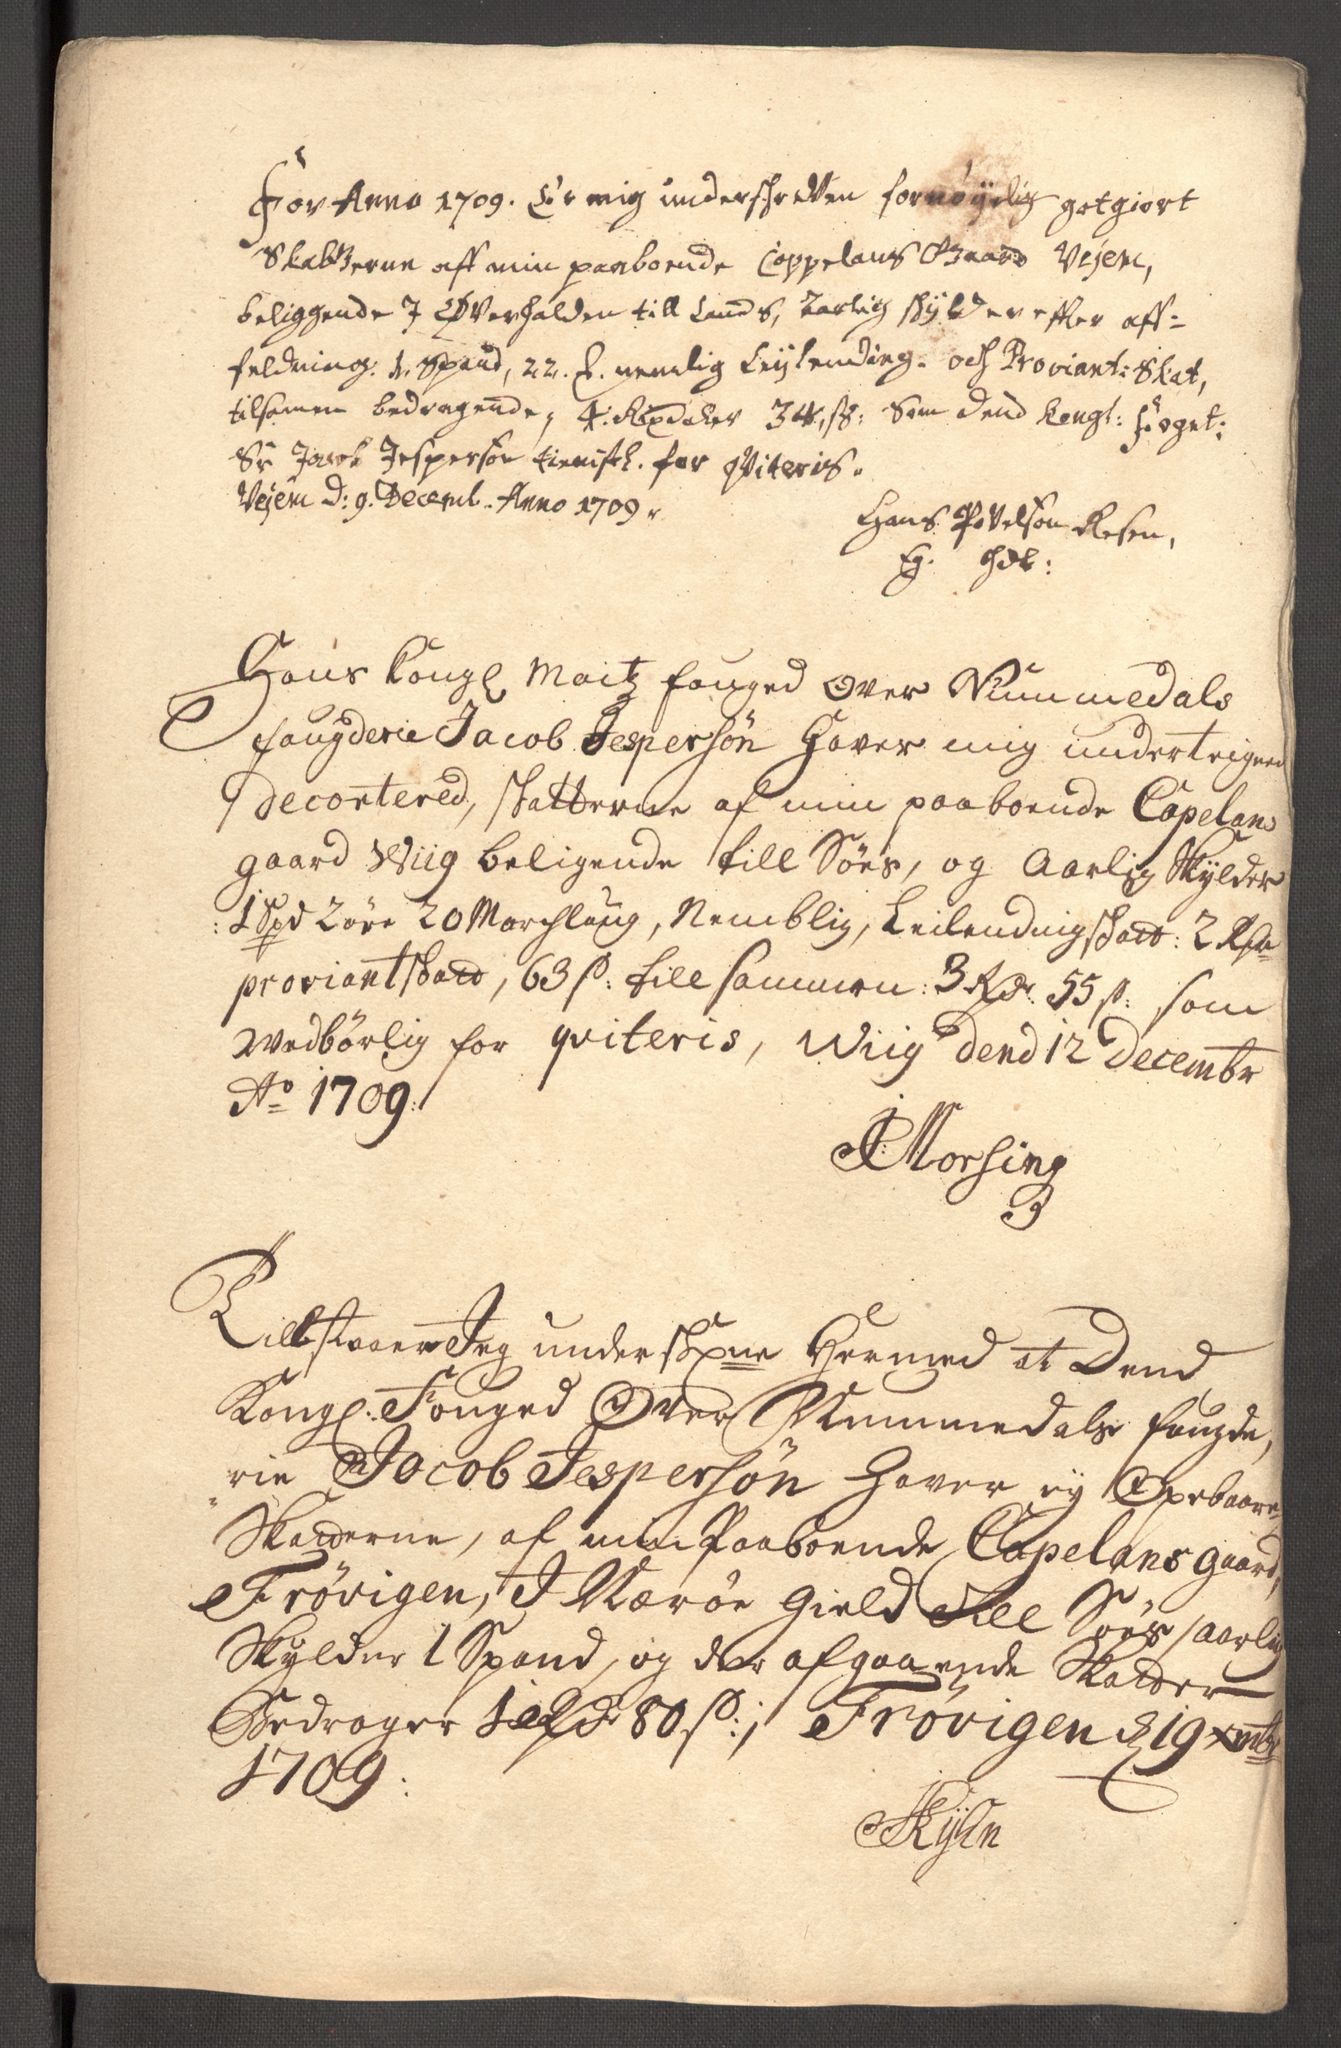 For Anno 1709. Er mig underschrefven fornøyelig gotgiort
Skatterne aff min paaboende Cappelans Gaard Vejem,
beliggende J Øfverhalden till Lands, Aarlig schylder effter aff-
feldning: 1. Spand, 22. nemlig Leylending- och Proviant: Skat,
tilsamen bedragende, 4. Rixdaler 34. ss: Som dend Kongl: foget:
Sr Jacob Jespersøn tienistl. for qviteris.
Vejem D: 9. Decembr. Anno 1709.
Hans Povelsøn Resen,
Eg. hdl:
Hans Kongl Maitz fouged over Nummedals
fougderie Jacob Jespersøn Haver mig underteigned
Decortered, skatterne af min paaboende Capelans
gaard Wiig beligende till Søes, og Aarlig Skylder
: 1 Spd 2 øre 20 Marchlaug, Nemblig, Leilendingskatt: 2 Rdr
proviantskatt, 63 s: till sammen: 3 Rdr. 55 s: som
wedbørlig for qviteris, Wiig dend 12 Decembr
Ao 1709:
J: Morsing
Tillstaaer Jeg underskrefne Hermed at Dend
Kongl: Fouged Over Nummedals fougde,
rie Sr Jacob Jespersøn Haver ey Opebaaret
Skatterne, af min Paaboende Capelans gaard,
Trøvigen, J Nærøe Gield till Søes, aarlig
Skylder 1 Spand, og der afgaaende Skatter
Bedrager 1 Rdr 80 s:, Trøvigen d 19 xmbr
1709: